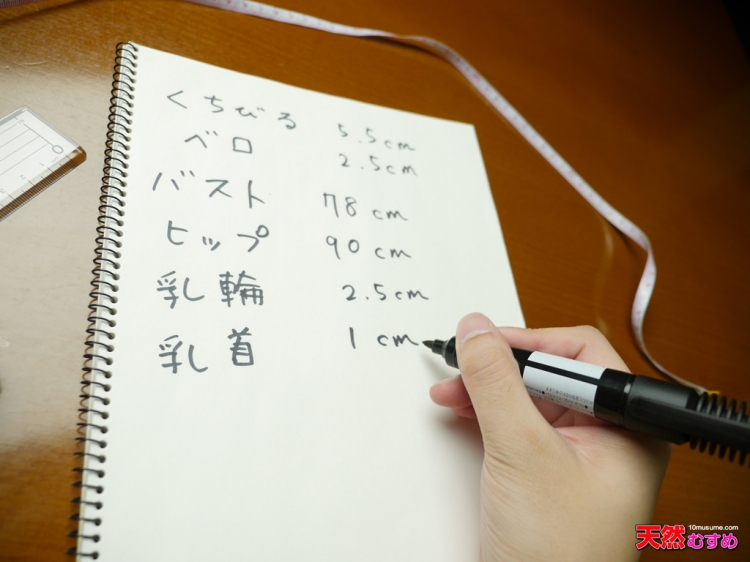 くちびる 5.5cm
ベロ 2.5cm
バスト 78cm
ヒップ 90cm
乳輪 2.5cm
乳首 1cm
10musume.com
天然むすめ